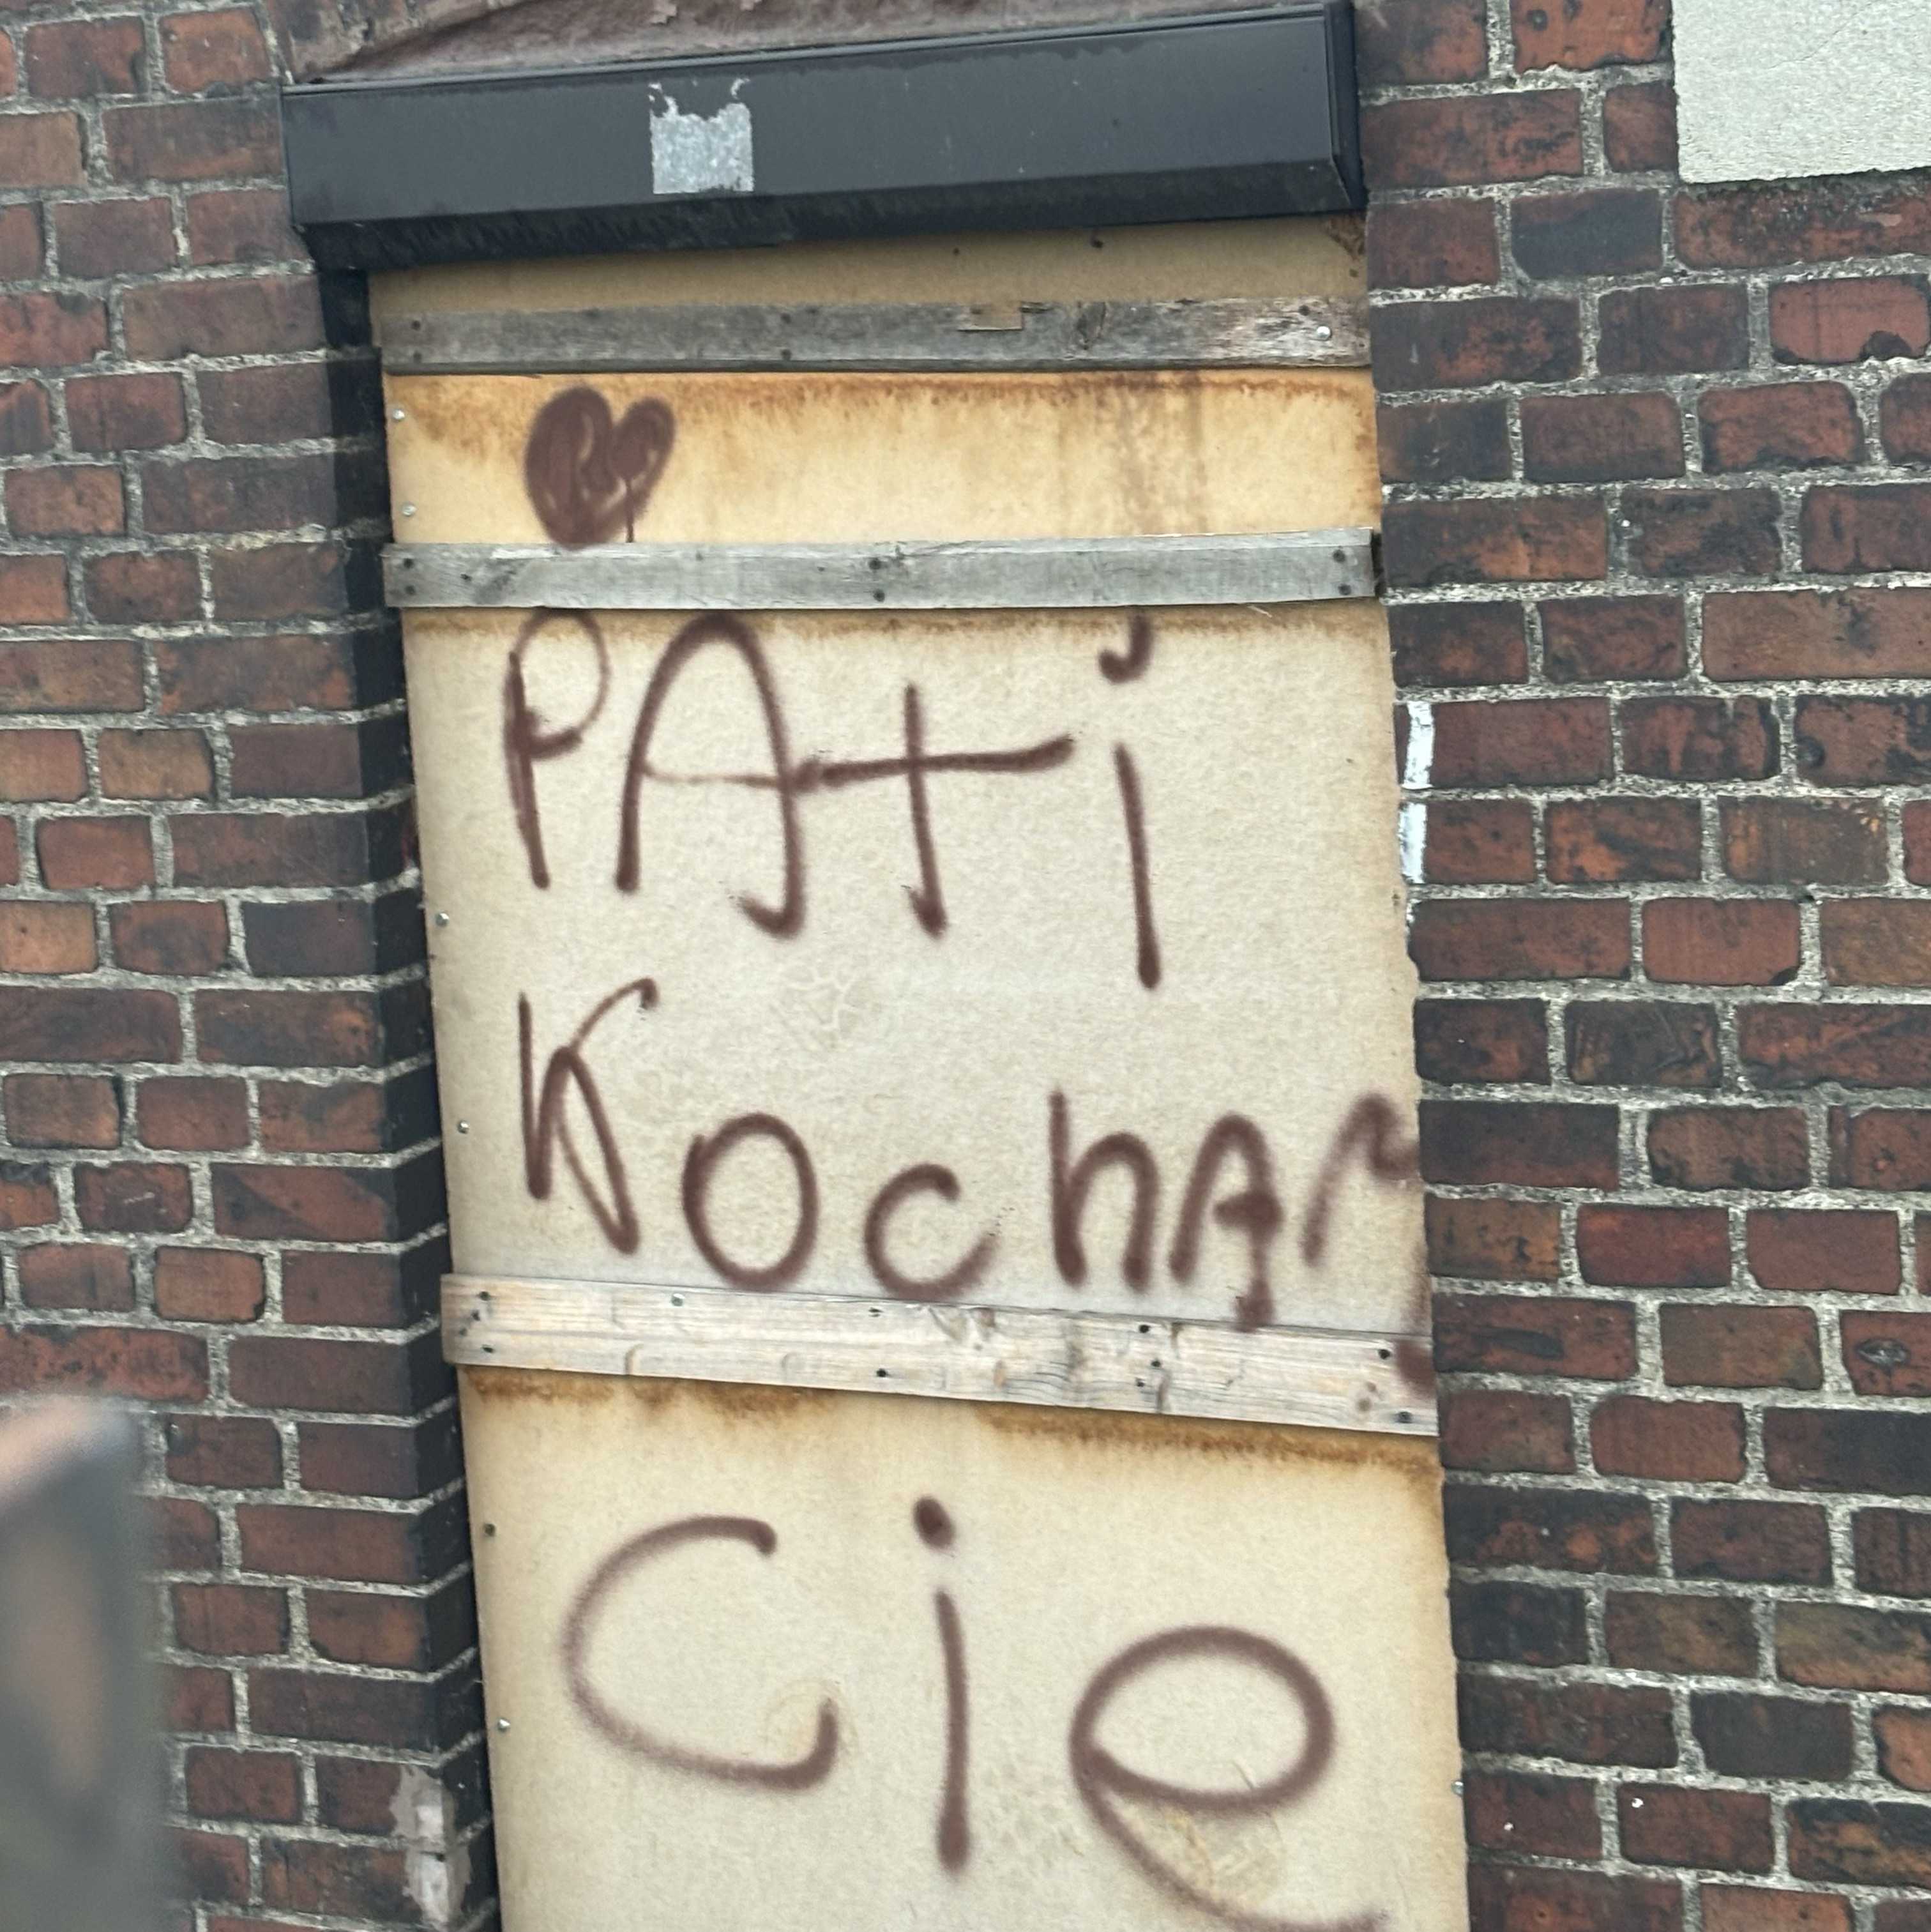 PAti
KochAM
Cie